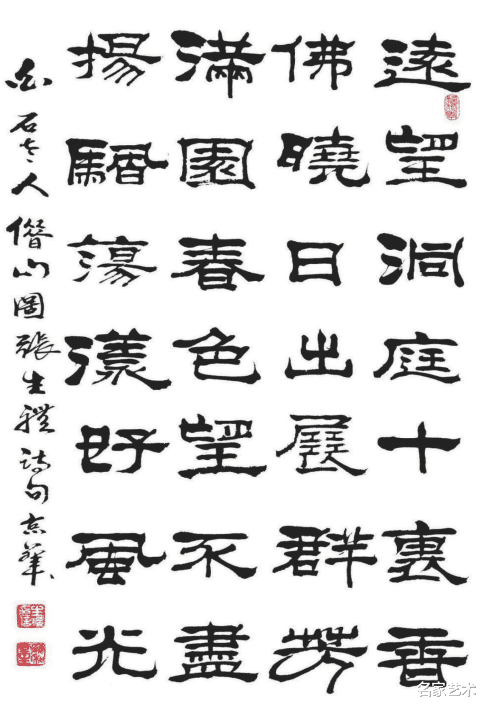 遠望洞庭十裏香
佛曉日出展群芳
滿園春色望不盡
揚蕩漾好風光
白石老人山圖張生禮詩句京華
名家艺术